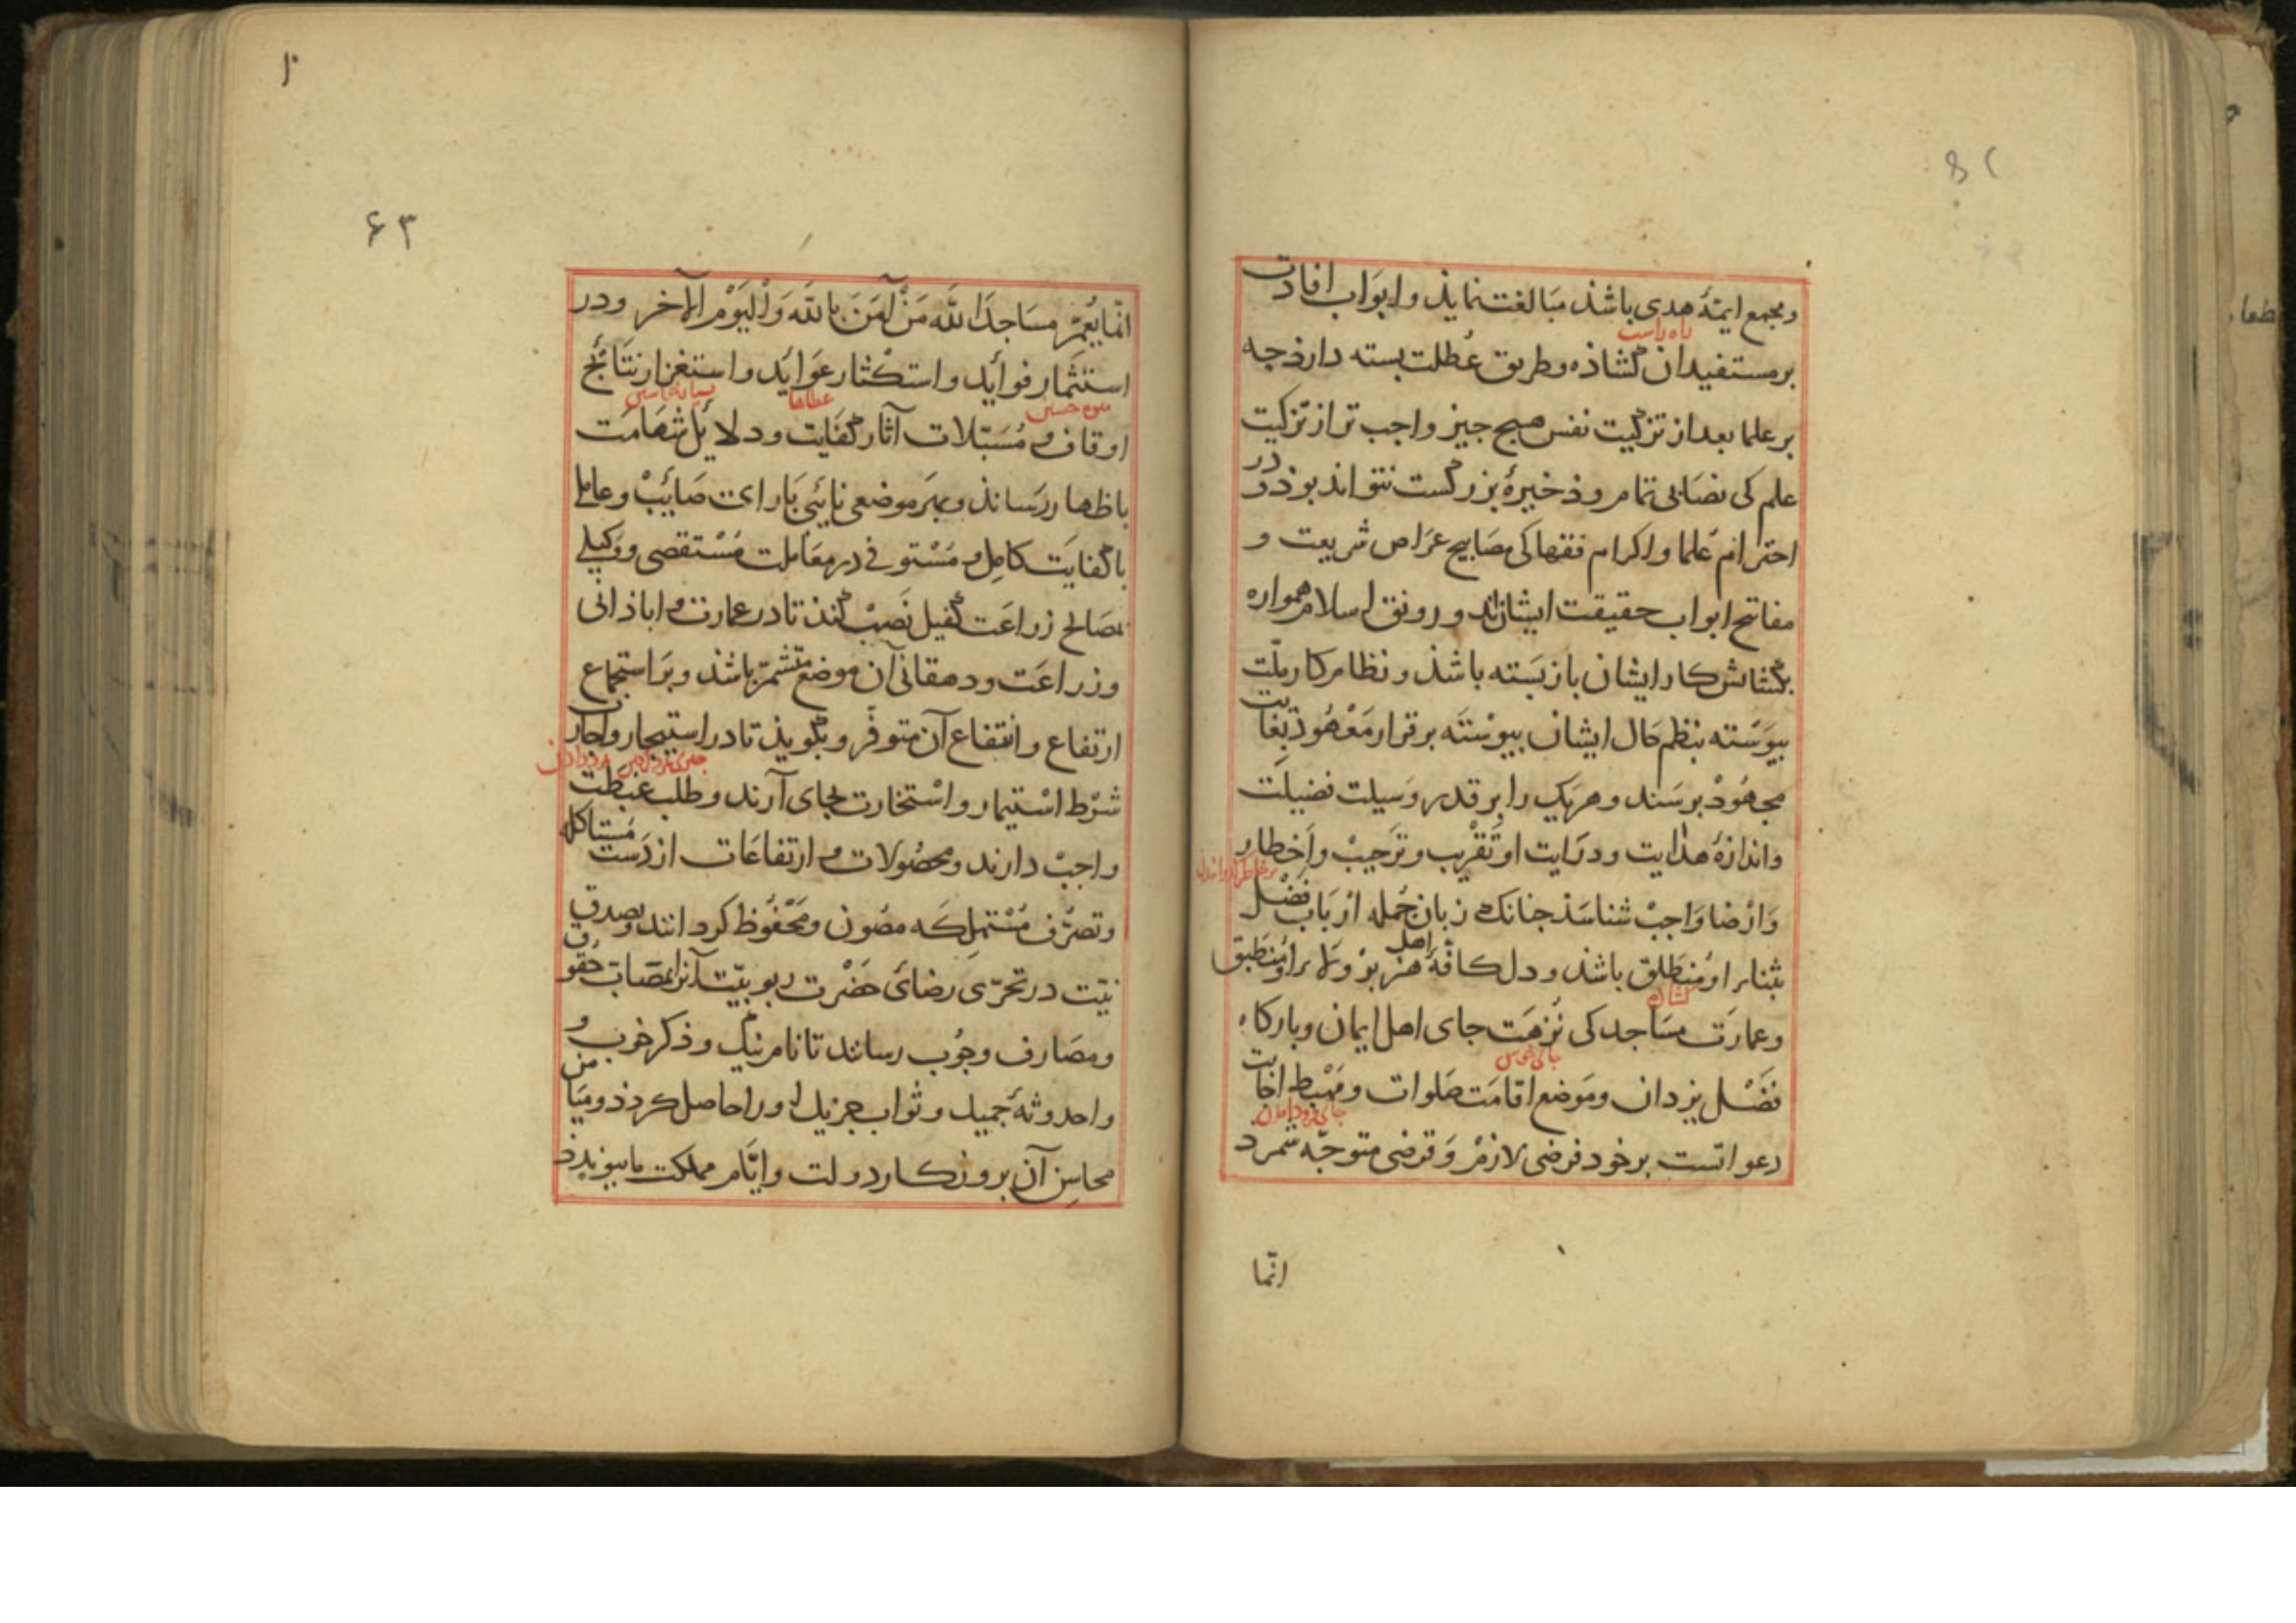 و مجمع ایمّهٔ هدی باشذ مبَالغت نمایذ و ابوَاب افادت
راه راست
بر مستفیدان کشاذه و طریق عُطلت بسته دارذ جه
بر علما بعد از تزکیت نفس هیج جیز واجب تر از تزکیت
علم کی نصَابی تمام و ذخیرهٔ بزرکست نتواند بوذ و در
احترام عُلما و اکرام فقها کی مصَابیح عرَاص شریعت و
مفاتیح ابواب حقیقت ایشانند و رونق اسلام همواره
بکشایش کار ایشان باز بَسته باشذ و نظام کار ملّت
بیوَسته بنظم حَال ایشان بیوسْتَه برقرار مَعْهُوذ بغایت
مجهُوذ برسَند و هر یک را بر قدر وسَیلت فضیلَت
و اندازهٔ هذایت و درَایت او تَقْریب و ترَحیبْ و اَخِطار
و ارْضا وَاجبْ شناسَذ جنانک زبان جُمله ارْبَاب فضْل
بثناء او مُنطَلق باشذ و دل کافّهٔ اهل هنر بر ولاء او مُنطَبق
کشاده
و عمارَت مسَاجد کی نُزهَت جای اهل ایمان و بارکاه
جای خوش
فضْل یزدان و مَوضع اقامَت صَلوات و مَهْبط اجابت
جای فرود امدن
دعواتست بر خود فرضی لازمْ و قرضی متوجّه شمرد
انّما
۶۳
انّما یَعْمُر مسَاجدَ اللَّه مَنْ آمَنَ باللَّه وَالْیَوْم الآخر و در
استثمار فوایَد و استکثار عَوَایَد و استغزار نتَائج
عطاها
اوقاف و مُسَبّلات آثار کفَایَت و دلایَل شهَامَت
باظهار رسَانذ و بهَر موضعی نایَبی بَا رای صَائبْ و عاملی
با کفایَت کامِل و مُسْتوفی در معَاملت مُسْتقصی و وَکیلی
بمصَالح زراعَت کفیل نَصبْ کنذ تا در عمارت و اباذانی
و زراعَت و دهقانی آن موضع متشمّر باشذ و بَر استجماع
ارتفاع و انتفاع آن متوفّر و بکویذ تا در استیجار و ایجار
شرْط اسْتیمار و اسْتخارت بجای آرند و طلب غبطت
واجبْ دارند و محصُولات و ارتفاعَات از دَست مُستاکله
و تصرّف مُسْتملِکَه مصُون و مَحْفُوظ کردانند و بصدق
نیّت در تحرّی رضائ حَضْرت ربوبیّت آنرا بمصَاب حقُوق
و مصَارف وجُوب رسانند تا نام نیک و ذکر خوب و
و احدوثهٔ جمیل و ثواب جزیل او را حاصل کردذ و میَامن
محاسِن آن بروزکار دولت و ایّام مملکت ما بیوندذ